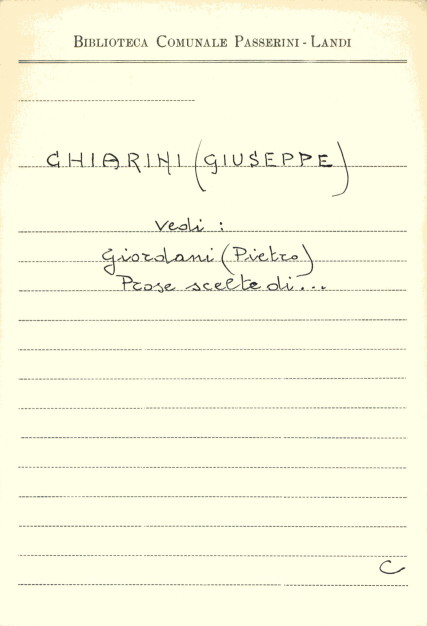 BIBLIOTECA COMUNALE PASSERINI - LANDI
CHIARINI (GIUSEPPE)
Vedi :
Giordani (Pietro)
Prose scelte di...
C